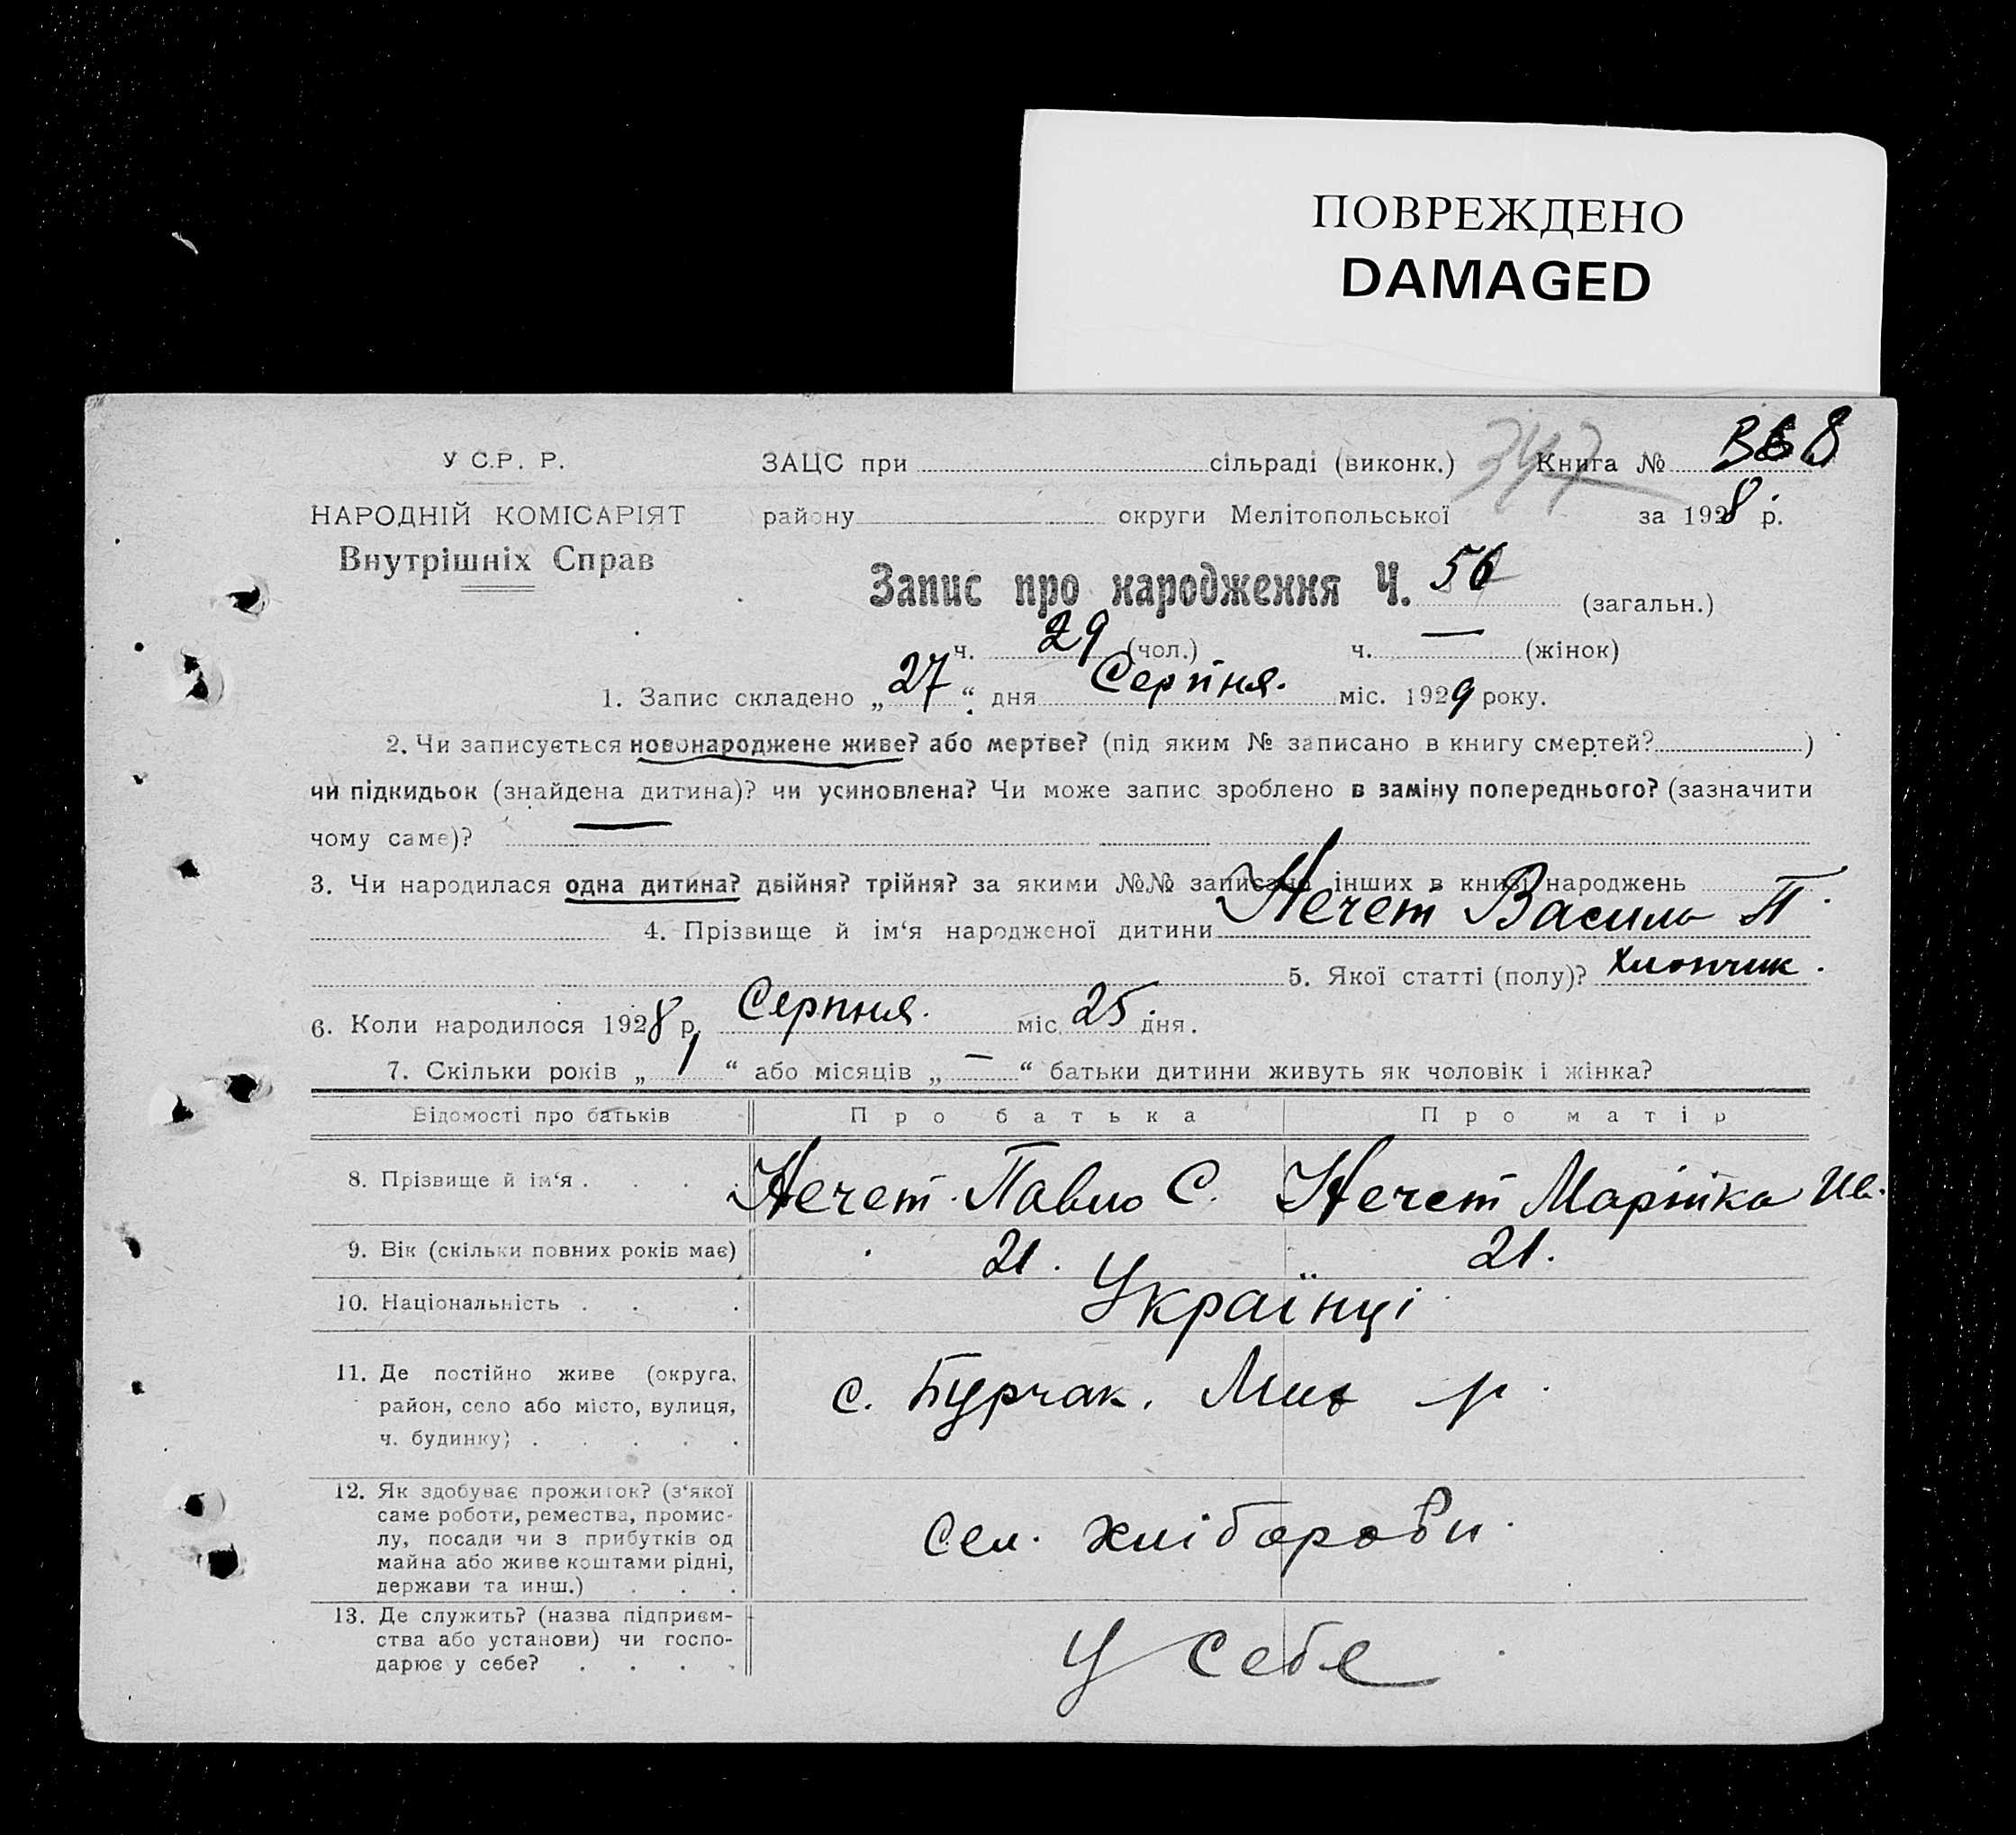 ПОВРЕЖДЕНО
DAMAGED
У С.Р. Р.
НАРОДНІЙ КОМІСАРІЯТ
Внутрішніх Справ
ЗАЦС при сільраді (виконк.) Книга №
району округи Мелітопольської за 1928 р.
Запис про народження Ч. 56 (загальн.)
ч. 29 (чол.) ч. — (жінок)
1. Запис складено „27“ дня Серпня. міс. 1929 року.
2. Чи записується новонароджене живе? або мертве? (під яким № записано в книгу смертей? )
чи підкидьок (знайдена дитина)? чи усиновлена? Чи може запис зроблено в заміну попереднього? (зазначити
чому саме)? —
3. Чи народилася одна дитина? двійня? трійня? за якими №№ записано інших в книзі народжень
4. Прізвище й ім‘я народженої дитини Нечет Василь П.
5. Якої статті (полу)? Хлопчик.
6. Коли народилося 1928 р. Серпня. міс. 25 дня.
7. Скільки років „1“ або місяців „—“ батьки дитини живуть як чоловік і жінка?
Відомості про батьків Про батька Про матір
8. Прізвище й ім‘я . . . . Нечет Павло С. Нечет Марійка Ив.
9. Вік (скільки повних років має) 21. 21.
10. Національність . . . . Українці
11. Де постійно живе (округа,
район, село або місто, вулиця,
ч. будинку) . . . . .
с. Бурчак. Мих р.
12. Як здобуває прожиток? (з‘якої
саме роботи, ремества, промис-
лу, посади чи з прибутків од
майна або живе коштами рідні,
держави та инш.) . . .
Сел. хлібороби.
13. Де служить? (назва підприєм-
ства або установи) чи госпо-
дарює у себе? . . . .
У себе